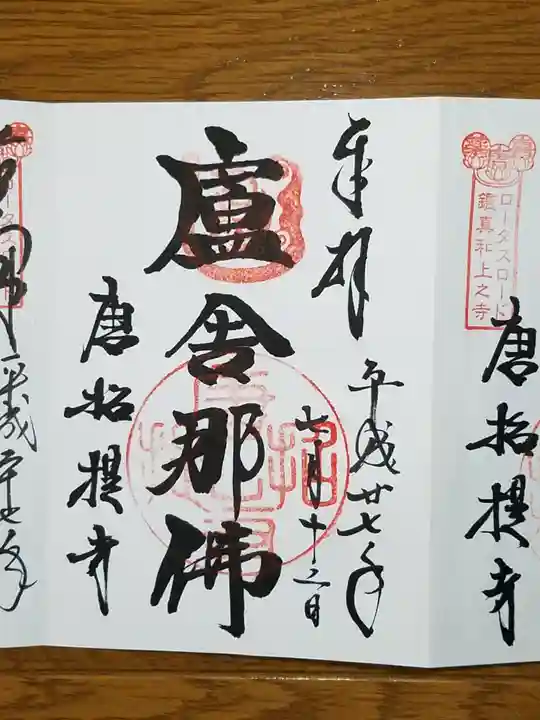 唐招提寺
ロータスロード
鑑真和上之寺
奉拝
平成廿七年
七月十二日
盧舎那佛
唐招提寺